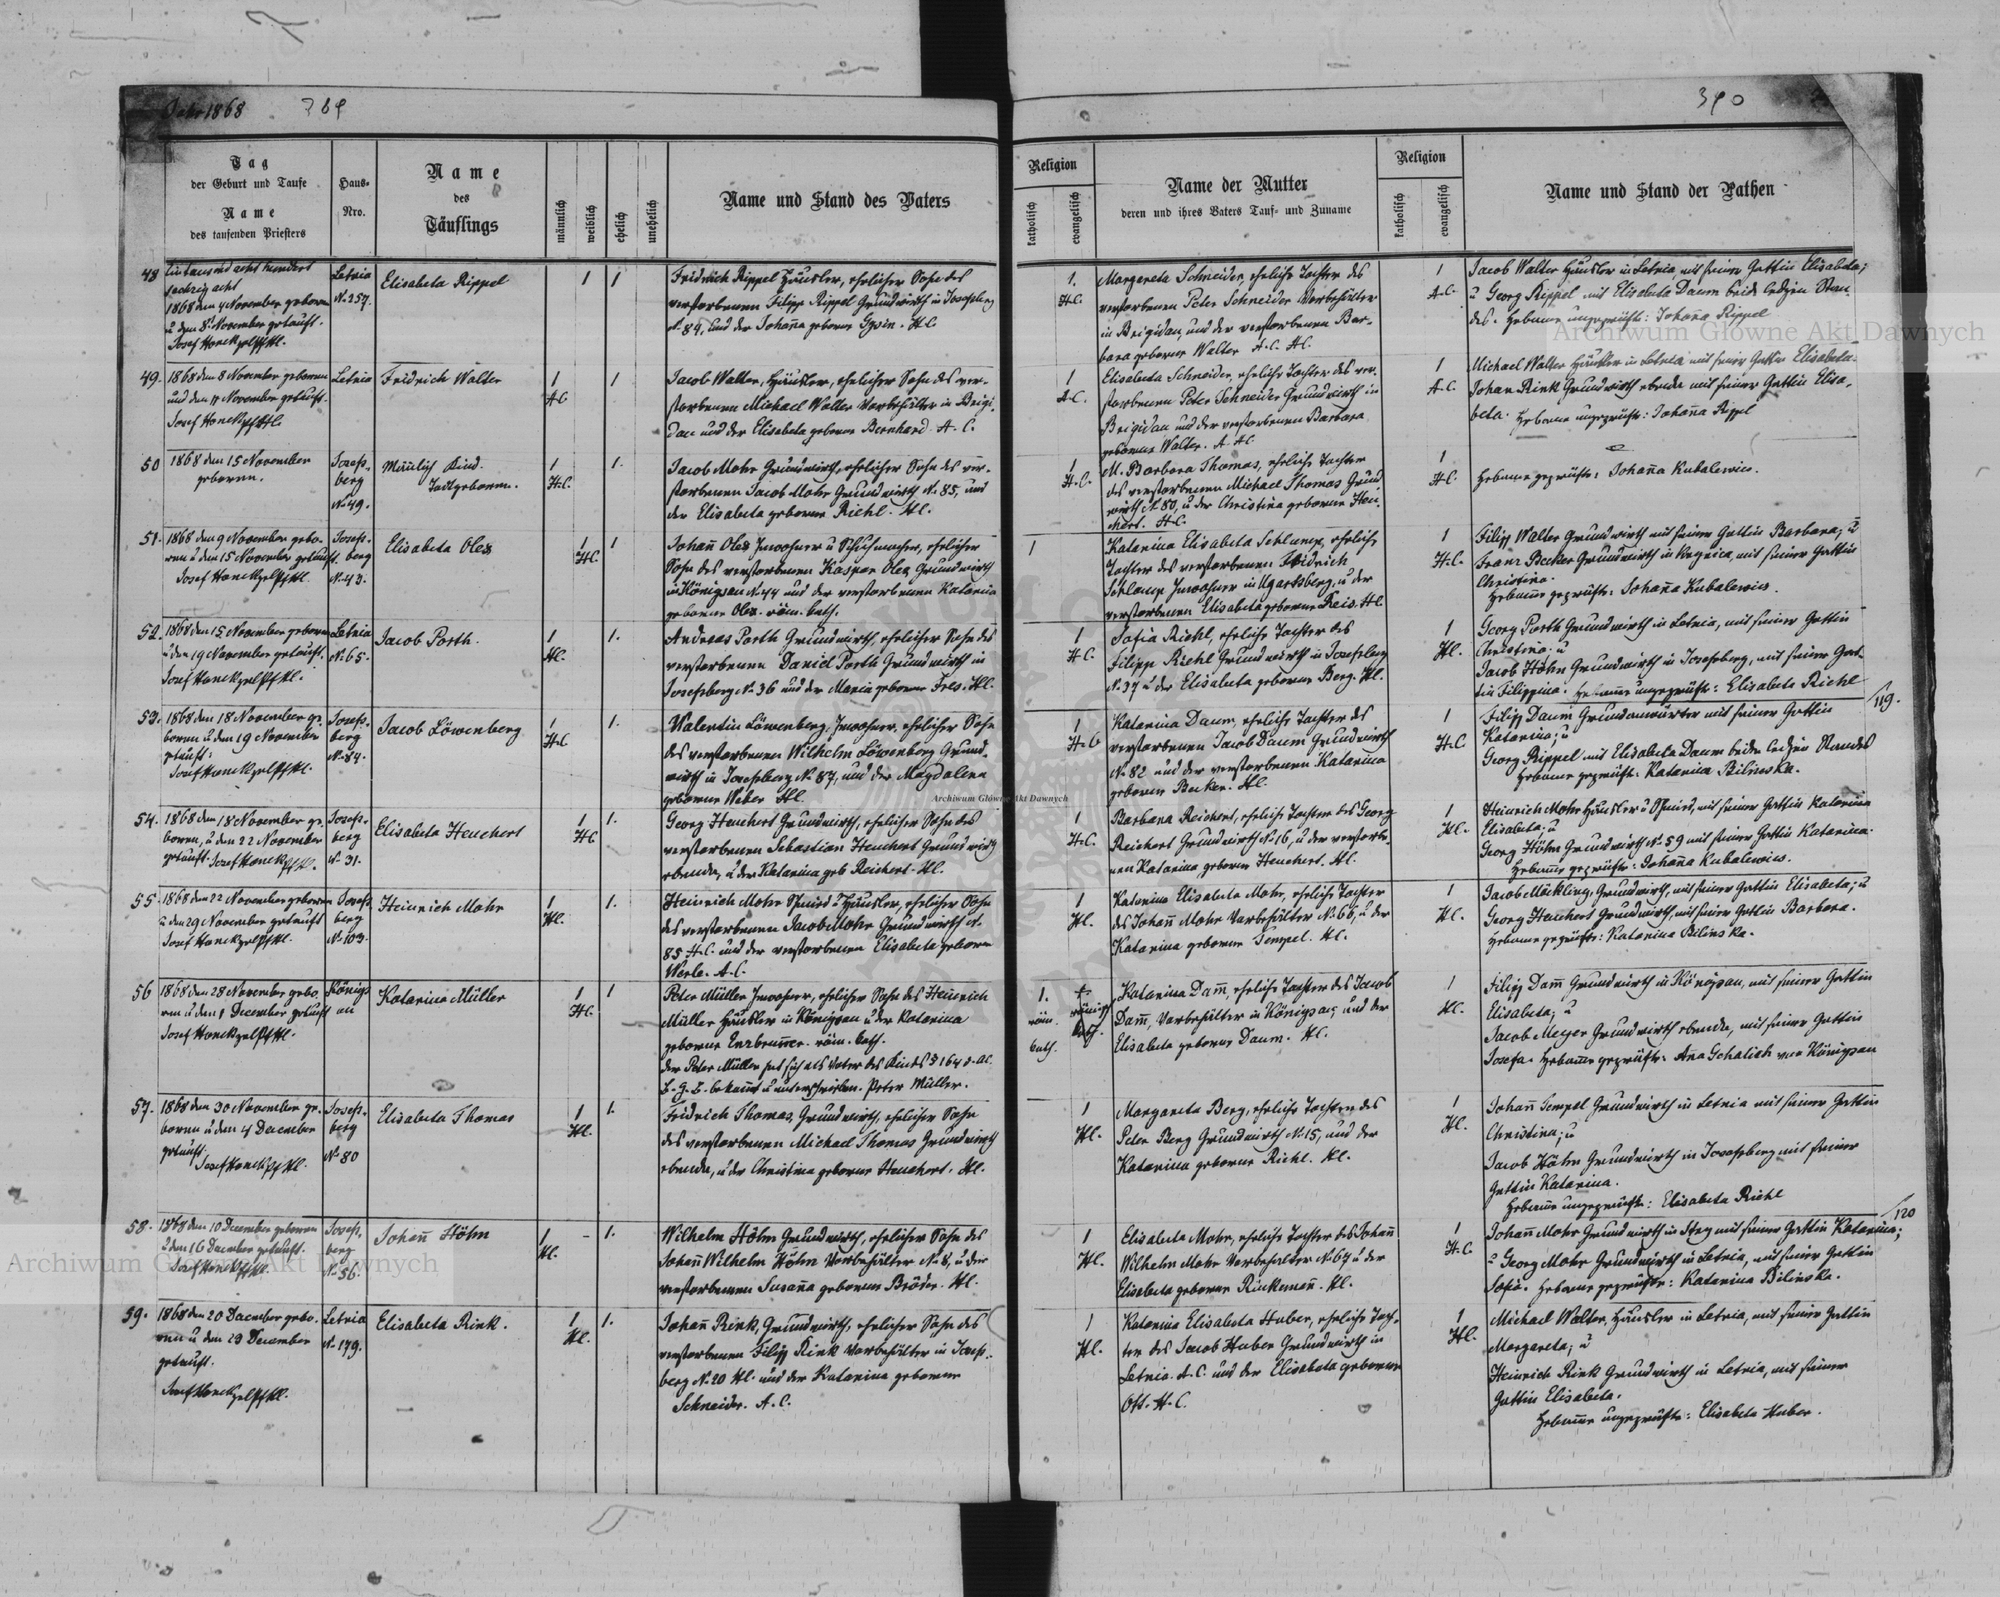 Jahr 1868
389
390
Tag
der Geburt und Taufe
Name
des taufenden Priesters
Haus-
Nro.
Name
des
Täuflings
männlich
weiblich
ehelich
unehelich
Name und Stand des Vaters
Religion
katholisch
evangelisch
Name der Mutter
deren und ihres Vaters Tauf- und Zuname
Religion
katholisch
evangelisch
Name und Stand der Pathen
48
Eintausend acht hundert
sechzig acht
1868 den 4 November geboren
u den 8 November getauft.
Josef Honek
Letnia
No 257.
Elisabeta Rippel
1 1
Fridrich Rippel Häusler, ehelicher Sohn des
verstorbenen Filipp Rippel Grundwirth in Josefsberg
No 84, und der Johanna geborne Gysin. H.C.
1.
H.C.
Margareta Schneider, eheliche Tochter des
verstorbenen Peter Schneider Vorbehälter
in Brigidau, und der verstorbenen Bar-
bara geborne Walter A.C. H.C.
1
A.C.
Jacob Walter Häusler in Letnia, mit seiner Gattin Elisabeta;
u Georg Rippel mit Elisabeta Daum beide ledigen Stan-
des. Hebamme ungeprüfte: Johana Rippel
49.
1868 den 8 November geboren
und den 11 November getauft.
Josef Honek
Letnia
Fridrich Walter
1 1
A.C.
Jacob Walter, Häusler, ehelicher Sohn des ver-
storbenen Michael Walter Vorbehälter in Brigi-
dau und der Elisabeta geborne Bernhard. A.C.
1
A.C.
Elisabeta Schneider, eheliche Tochter des ver-
storbenen Peter Schneider Grundwirth in
Brigidau und der verstorbenen Barbara
geborne Walter. A. H.C.
1
A.C.
Michael Walter Häusler in Letnia mit seiner Gattin Elisabeta.
Johan Rink Grundwirth ebenda mit seiner Gattin Elisa-
beta. Hebamme ungeprüfte: Johanna Rippel
50
1868 den 15 November
geboren.
Josefs-
berg
No 49.
Männlich Kind.
Todtgeboren.
1 1.
H.C.
Jacob Mohr Grundwirth, ehelicher Sohn des ver-
storbenen Jacob Mohr Grundwirth No 85, und
der Elisabeta geborne Riehl. H.C.
1
H.C.
M. Barbara Thomas, eheliche Tochter
des verstorbenen Michael Thomas Grund
wirth No 80, u der Christina geborne Heu-
chert. H.C.
1
H.C.
Hebamme geprüfte: Johanna Kubalewicz.
51.
1868 den 9 November gebo-
ren u den 15 November getauft.
Josef Honek
Josefs-
berg
No 43.
Elisabeta Olex
1 1
H.C.
Johann Olex Inwohner u Schuhmacher, ehelicher
Sohn des verstorbenen Kaspar Olex Grundwirth
in Königsau No 44 und der verstorbenen Katarina
geborne Olex. röm. kath.
1
Katarina Elisabeta Schlamp, eheliche
Tochter des verstorbenen Fridrich
Schlamp Inwohner in Ugartsberg, u der
verstorbenen Elisabeta geborne Reis. H.C.
1
H.C.
Filipp Walter Grundwirth mit seiner Gattin Barbara; u
Franz Becker Grundwirth in Kognica, mit seiner Gattin
Christina.
Hebamme geprüfte: Johanna Kubalewicz.
52.
1868 den 15 November geboren
u den 19 November getauft.
Josef Honek
Letnia
No 65.
Jacob Porth.
1 1.
H.C.
Andreas Porth Grundwirth, ehelicher Sohn des
verstorbenen Daniel Porth Grundwirth in
Josefsberg No 36 und der Maria geborne Fels. H.C.
1
H.C.
Sofia Riehl, eheliche Tochter des
Filipp Riehl Grundwirth in Josefsberg
No 37 u der Elisabeta geborne Berg. H.C.
1
H.C.
Georg Porth Grundwirth in Letnia, mit seiner Gattin
Christina: u
Jacob Höhn Grundwirth in Josefsberg, mit seiner Gat-
tin Filippina. Hebamme ungeprüfte: Elisabeta Riehl
119.
53.
1868 den 18 November ge-
boren u den 19 November
getauft.
Josef Honek
Josefs-
berg
No 84.
Jacob Löwenberg
1 1.
H.C.
Walentin Löwenberg, Inwohner, ehelicher Sohn
des verstorbenen Wilhelm Löwenberg Grund-
wirth in Josefsberg No 87, und der Magdalena
geborne Weber H.C.
1
H.C.
Katarina Daum, eheliche Tochter des
verstorbenen Jacob Daum Grundwirth
No 82 und der verstorbenen Katarina
geborne Becker. H.C.
1
H.C.
Filipp Daum Grundanwärter mit seiner Gattin
Katarina; u
Georg Rippel mit Elisabeta Daum beide ledigen Standes
Hebamme geprüfte: Katarina Bilinska.
54.
1868 den 18 November ge-
boren, u den 22 November
getauft. Josef Honek
Josefs-
berg
No 31.
Elisabeta Heuchert
1 1.
H.C.
Georg Heuchert Grundwirth, ehelicher Sohn des
verstorbenen Sebastian Heuchert Grundwirth
ebenda, u der Katarina geb Reichert. H.C.
1
H.C.
Barbara Reichert, eheliche Tochter des Georg
Reichert Grundwirth No 16, u der verstorbe-
nen Katarina geborne Heuchert. H.C.
1
H.C.
Heinrich Mohr Häusler u Schmied, mit seiner Gattin Katarina
Elisabeta; u
Georg Höhn Grundwirth No 59 mit seiner Gattin Katarina.
Hebamme geprüfte: Johanna Kubalewicz.
55.
1868 den 22 November geboren
u den 29 November getauft
Josef Honek
Josefs-
berg
No 103.
Heinrich Mohr
1 1.
H.C.
Heinrich Mohr Schmied u Häusler, ehelicher Sohn
des verstorbenen Jacob Mohr Grundwirth No
85 H.C. und der verstorbenen Elisabeta geborne
Werle. A.C.
1
H.C.
Katarina Elisabeta Mohr, eheliche Tochter
des Johann Mohr Vorbehälter No 66, u der
Katarina geborne Tempel. H.C.
1
H.C.
Jacob Mückling, Grundwirth, mit seiner Gattin Elisabeta; u
Georg Heuchert Grundwirth, mit seiner Gattin Barbara.
Hebamme geprüfte: Katarina Bilinska.
56
1868 den 28 November gebo-
ren u den 1 December getauft
Josef Honek
Königs
au
Katarina Müller
1 1
H.C.
Peter Müller Inwohner, ehelicher Sohn des Heinrich
Müller Häusler in Königsau u der Katarina
geborne Enzbrunner. röm. kath.
der Peter Müller hat sich als Vater des Kindes § 164 d. a.
b. G. B. bekannt u unterschrieben. Peter Müller.
1.
röm.
kath.
römisch
kath.
Katarina Damm, eheliche Tochter des Jacob
Damm, Vorbehälter in Königsau, und der
Elisabeta geborne Daum. H.C.
1
H.C.
Filipp Damm Grundwirth in Königsau, mit seiner Gattin
Elisabeta; u
Jacob Meyer Grundwirth ebenda, mit seiner Gattin
Josefa. Hebamme geprüfte: Anna Schalich von Königsau
57.
1868 den 30 November ge-
boren u den 4 December
getauft.
Josef Honek
Josefs-
berg
No 80
Elisabeta Thomas
1 1.
H.C.
Fridrich Thomas, Grundwirth, ehelicher Sohn
des verstorbenen Michael Thomas Grundwirth
ebenda, u der Christina geborne Heuchert. H.C.
1
H.C.
Margareta Berg, eheliche Tochter des
Peter Berg Grundwirth No 15, und der
Katarina geborne Riehl. H.C.
1
H.C.
Johann Tempel Grundwirth in Letnia mit seiner Gattin
Christina; u
Jacob Höhn Grundwirth in Josefsberg mit seiner
Gattin Katarina.
Hebamme ungeprüfte: Elisabeta Riehl
120
58.
1868 den 10 December geboren
u den 16 December getauft.
Josef Honek
Josefs-
berg
No 56.
Johann Höhn
1 - 1.
H.C.
Wilhelm Höhn Grundwirth, ehelicher Sohn des
Johann Wilhelm Höhn Vorbehälter No 8, u der
verstorbenen Susanna geborne Bröder. H.C.
1
H.C.
Elisabeta Mohr, eheliche Tochter des Johann
Wilhelm Mohr Vorbehälter No 64 u der
Elisabeta geborne Rinkemann. H.C.
1
H.C.
Johann Mohr Grundwirth in Steg mit seiner Gattin Katarina;
u Georg Mohr Grundwirth in Letnia, mit seiner Gattin
Sofia. Hebamme geprüfte: Katarina Bilinska.
59.
1868 den 20 December gebo-
ren u den 29 December
getauft.
Josef Honek
Letnia
No 179.
Elisabeta Rink.
1 1.
H.C.
Johann Rink, Grundwirth, ehelicher Sohn des
verstorbenen Filipp Rink Vorbehälter in Josefs-
berg No 20 H.C. und der Katarina geborne
Schneider. A.C.
1
H.C.
Katarina Elisabeta Huber, eheliche Toch-
ter des Jacob Huber Grundwirth in
Letnia. A.C. und der Elisabeta geborne
Ott. H.C.
1
H.C.
Michael Walter, Häusler in Letnia, mit seiner Gattin
Margareta; u
Heinrich Rink Grundwirth in Letnia, mit seiner
Gattin Elisabeta.
Hebamme ungeprüfte: Elisabeta Huber.
Archiwum Główne Akt Dawnych
Archiwum Główne Akt Dawnych
Archiwum Główne Akt Dawnych